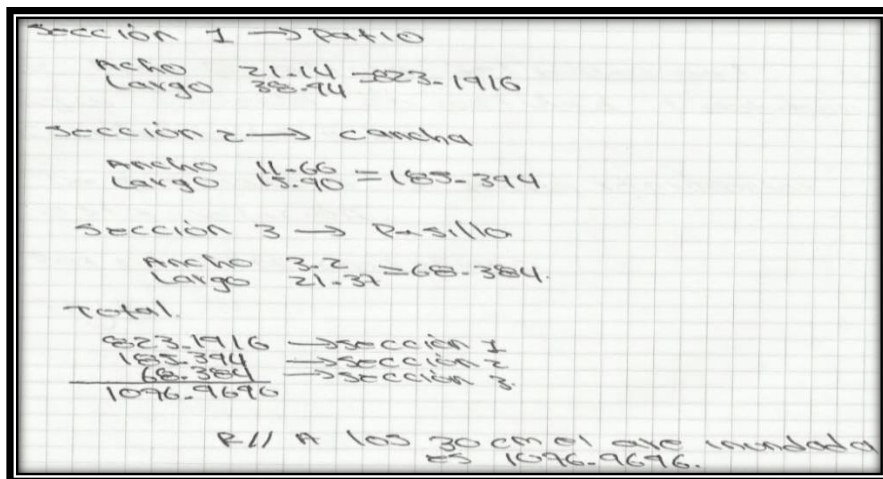 Sección 1 → Patio
Acho 21.14
Largo 38.94 = 823.1916
Sección 2 → cancha
Ancho 11.66
Largo 15.90 = 185.394
Sección 3 → Pasillo
Ancho 3.2
Largo 21.37 = 68.384.
Total.
823.1916 → sección 1
185.394 → sección 2
68.384 → sección 3.
1076.9696
R// A los 30 cm el are inundada
es 1076.9696.